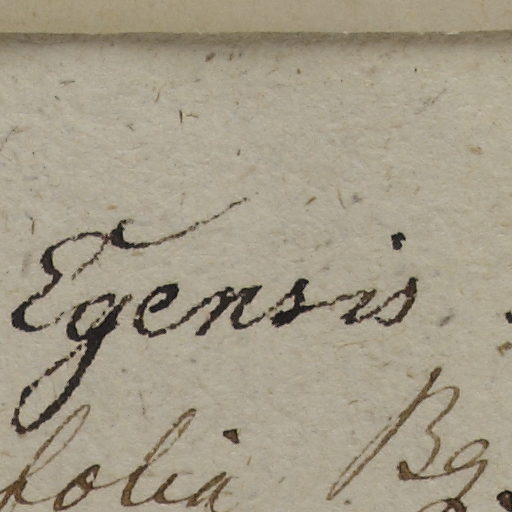 Egensis.
folia Bg